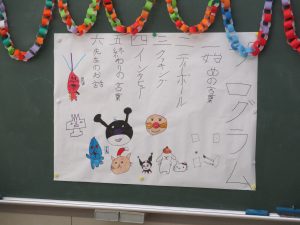 プログラム
一 始めの言葉
二 ボール
三 クッキング
四 インタビュー
五 終わりの言葉
六 先生のお話